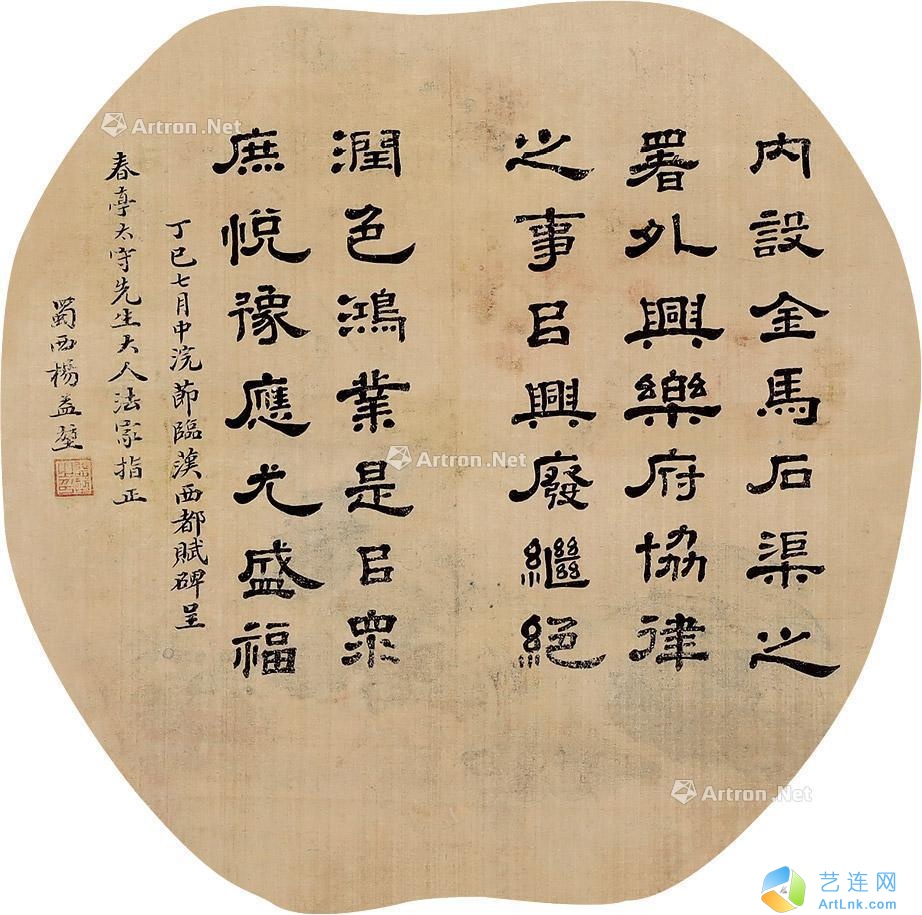 内設金馬石渠之
署外興樂府協律
之事㠯興廢繼絕
潤色鴻業是㠯眾
庶悅豫應尤盛福
丁巳七月中浣節臨漢西都賦碑呈
春亭太守先生大人法家指正
蜀西楊益
Artron.Net
Artron.Net
Artron.Net
艺连网
ArtLnk.com